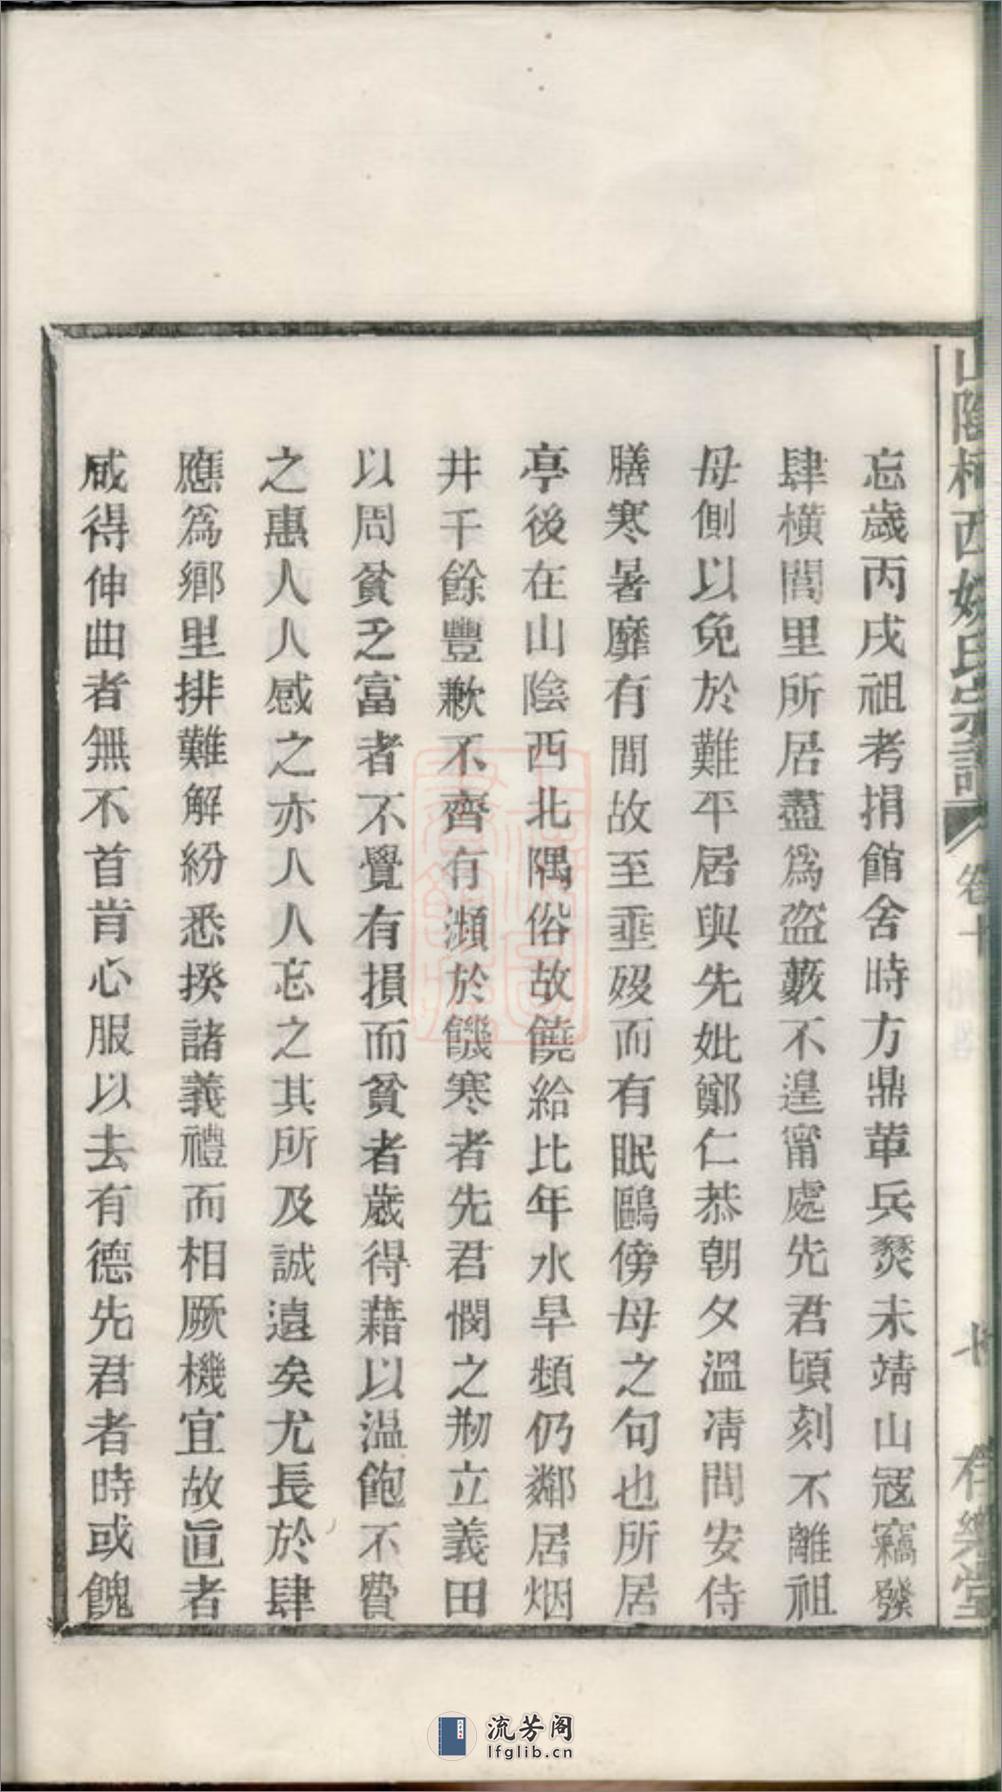 忘歲丙戌祖考捐館舍時方鼎革兵燹未靖山冦竊發
肆橫閭里所居盡爲盜藪不遑甯處先君頃刻不離祖
母側以免於難平居與先妣鄭仁恭朝夕溫凊問安侍
膳寒暑靡有間故至垂歿而有眠鷗傍母之句也所居
亭後在山陰西北隅俗故饒給比年水旱頻仍鄰居烟
井千餘豐歉不齊有瀕於饑寒者先君憫之刱立義田
以周貧乏富者不覺有損而貧者歲得藉以溫飽不費
之惠人人感之亦人人忘之其所及誠遠矣尤長於肆
應爲鄉里排難解紛悉揆諸義禮而相厥機宜故直者
咸得伸曲者無不首肯心服以去有德先君者時或餽
山陰柯西姚氏宗譜
卷十
七
樂堂
流芳阁
lfglib.cn